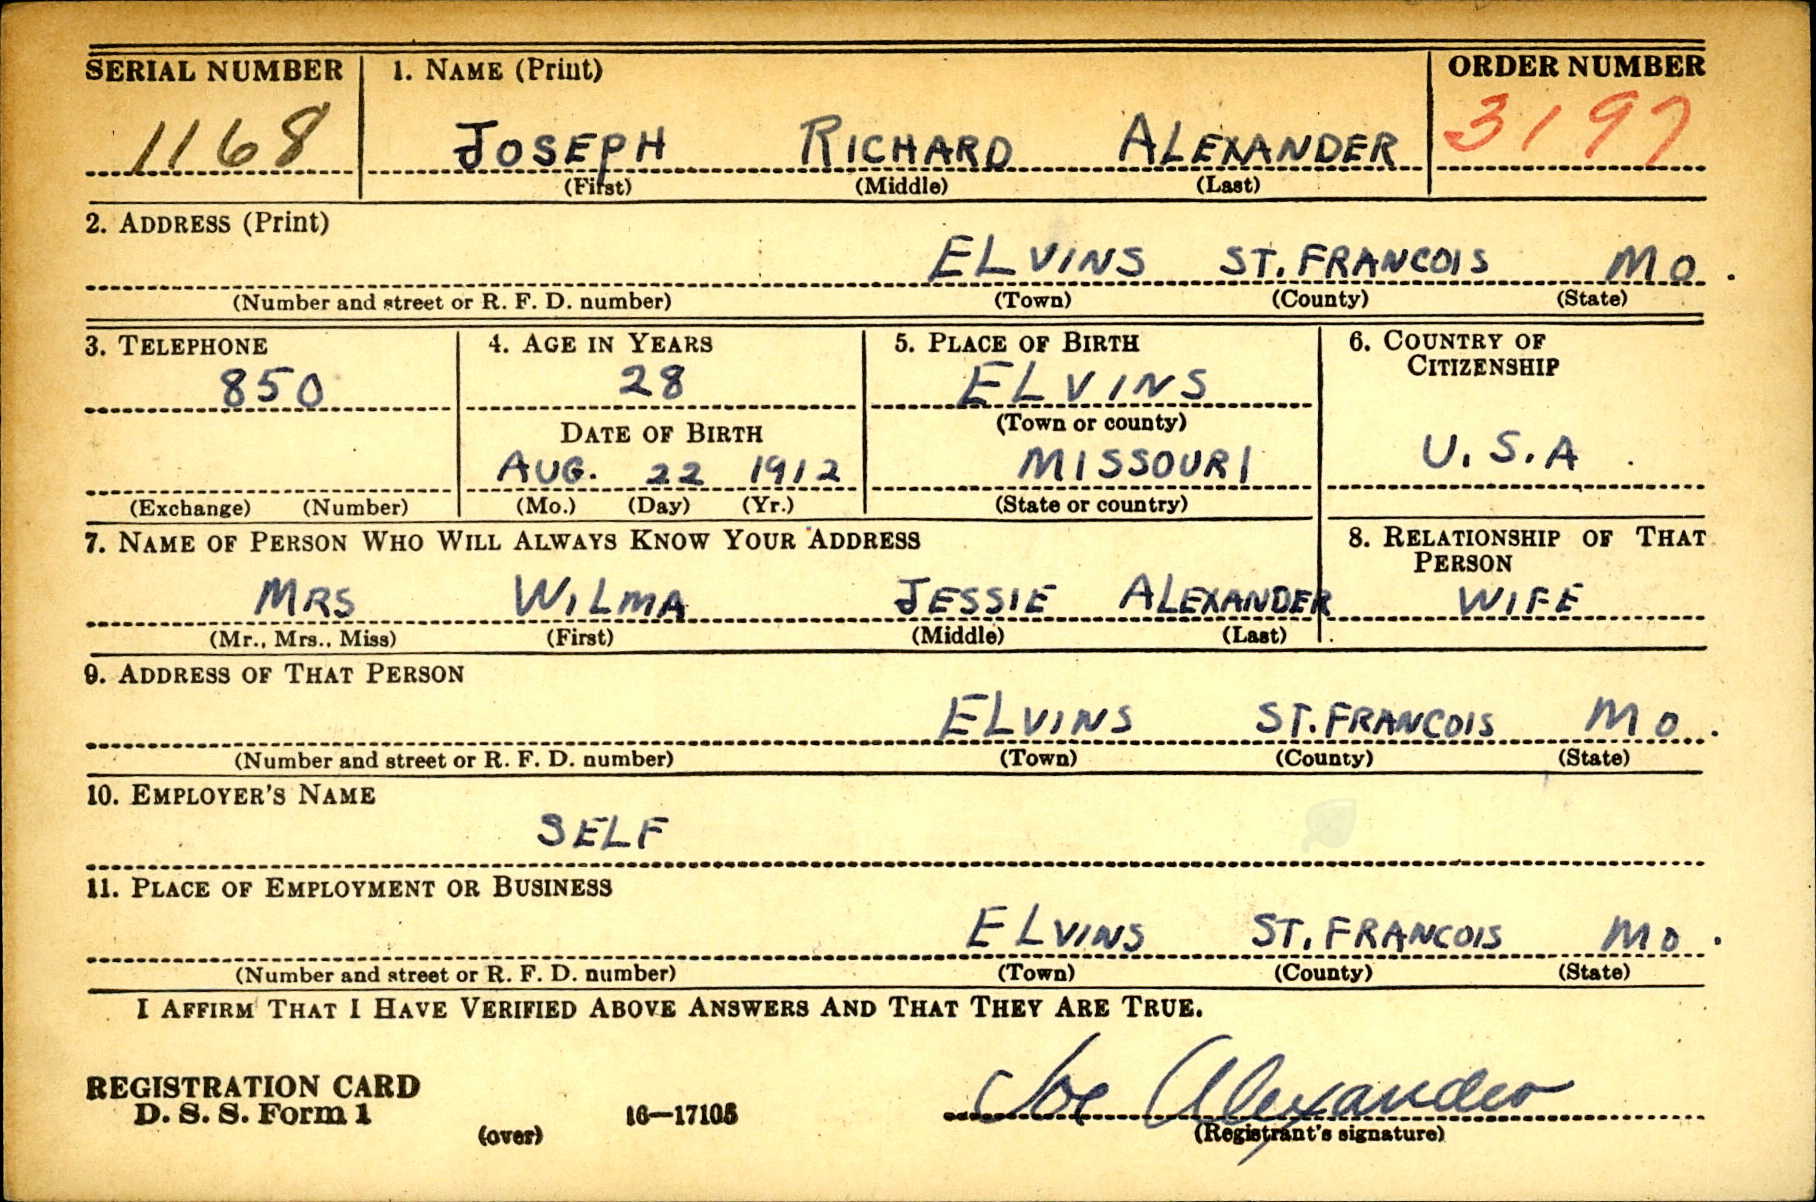 SERIAL NUMBER 1. NAME (Print) ORDER NUMBER
1168 JOSEPH RICHARD ALEXANDER 3197
(First) (Middle) (Last)
2. ADDRESS (Print)
ELVINS ST. FRANCOIS MO.
(Number and street or R. F. D. number) (Town) (County) (State)
3. TELEPHONE 4. AGE IN YEARS 5. PLACE OF BIRTH 6. COUNTRY OF
CITIZENSHIP
850 28 ELVINS
DATE OF BIRTH (Town or county)
AUG. 22 1912 MISSOURI U.S.A.
(Exchange) (Number) (Mo.) (Day) (Yr.) (State or country)
7. NAME OF PERSON WHO WILL ALWAYS KNOW YOUR ADDRESS 8. RELATIONSHIP OF THAT
PERSON
MRS WILMA JESSIE ALEXANDER WIFE
(Mr., Mrs., Miss) (First) (Middle) (Last)
9. ADDRESS OF THAT PERSON
ELVINS ST. FRANCOIS MO.
(Number and street or R. F. D. number) (Town) (County) (State)
10. EMPLOYER'S NAME
SELF
11. PLACE OF EMPLOYMENT OR BUSINESS
ELVINS ST. FRANCOIS MO.
(Number and street or R. F. D. number) (Town) (County) (State)
I AFFIRM THAT I HAVE VERIFIED ABOVE ANSWERS AND THAT THEY ARE TRUE.
REGISTRATION CARD Joe Alexander
D. S. S. Form 1 16—17105
(over) (Registrant's signature)